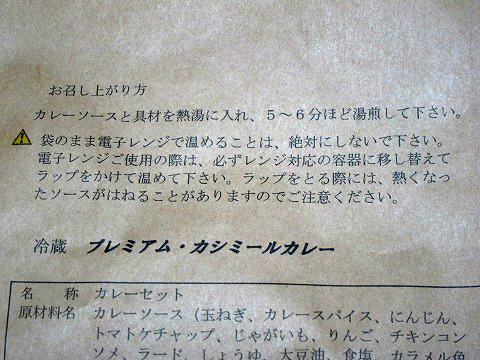 お召し上がり方
カレーソースと具材を熱湯に入れ、５～６分ほど湯煎して下さい。
袋のまま電子レンジで温めることは、絶対にしないで下さい。
電子レンジご使用の際は、必ずレンジ対応の容器に移し替えて
ラップをかけて温めて下さい。ラップをとる際には、熱くなっ
たソースがはねることがありますのでご注意ください。
冷蔵　プレミアム・カシミールカレー
名　　称　カレーセット
原材料名　カレーソース（玉ねぎ、カレースパイス、にんじん、
トマトケチャップ、じゃがいも、りんご、チキンコン
ソメ、ラード、しょうゆ、大豆油、食塩、カラメル色